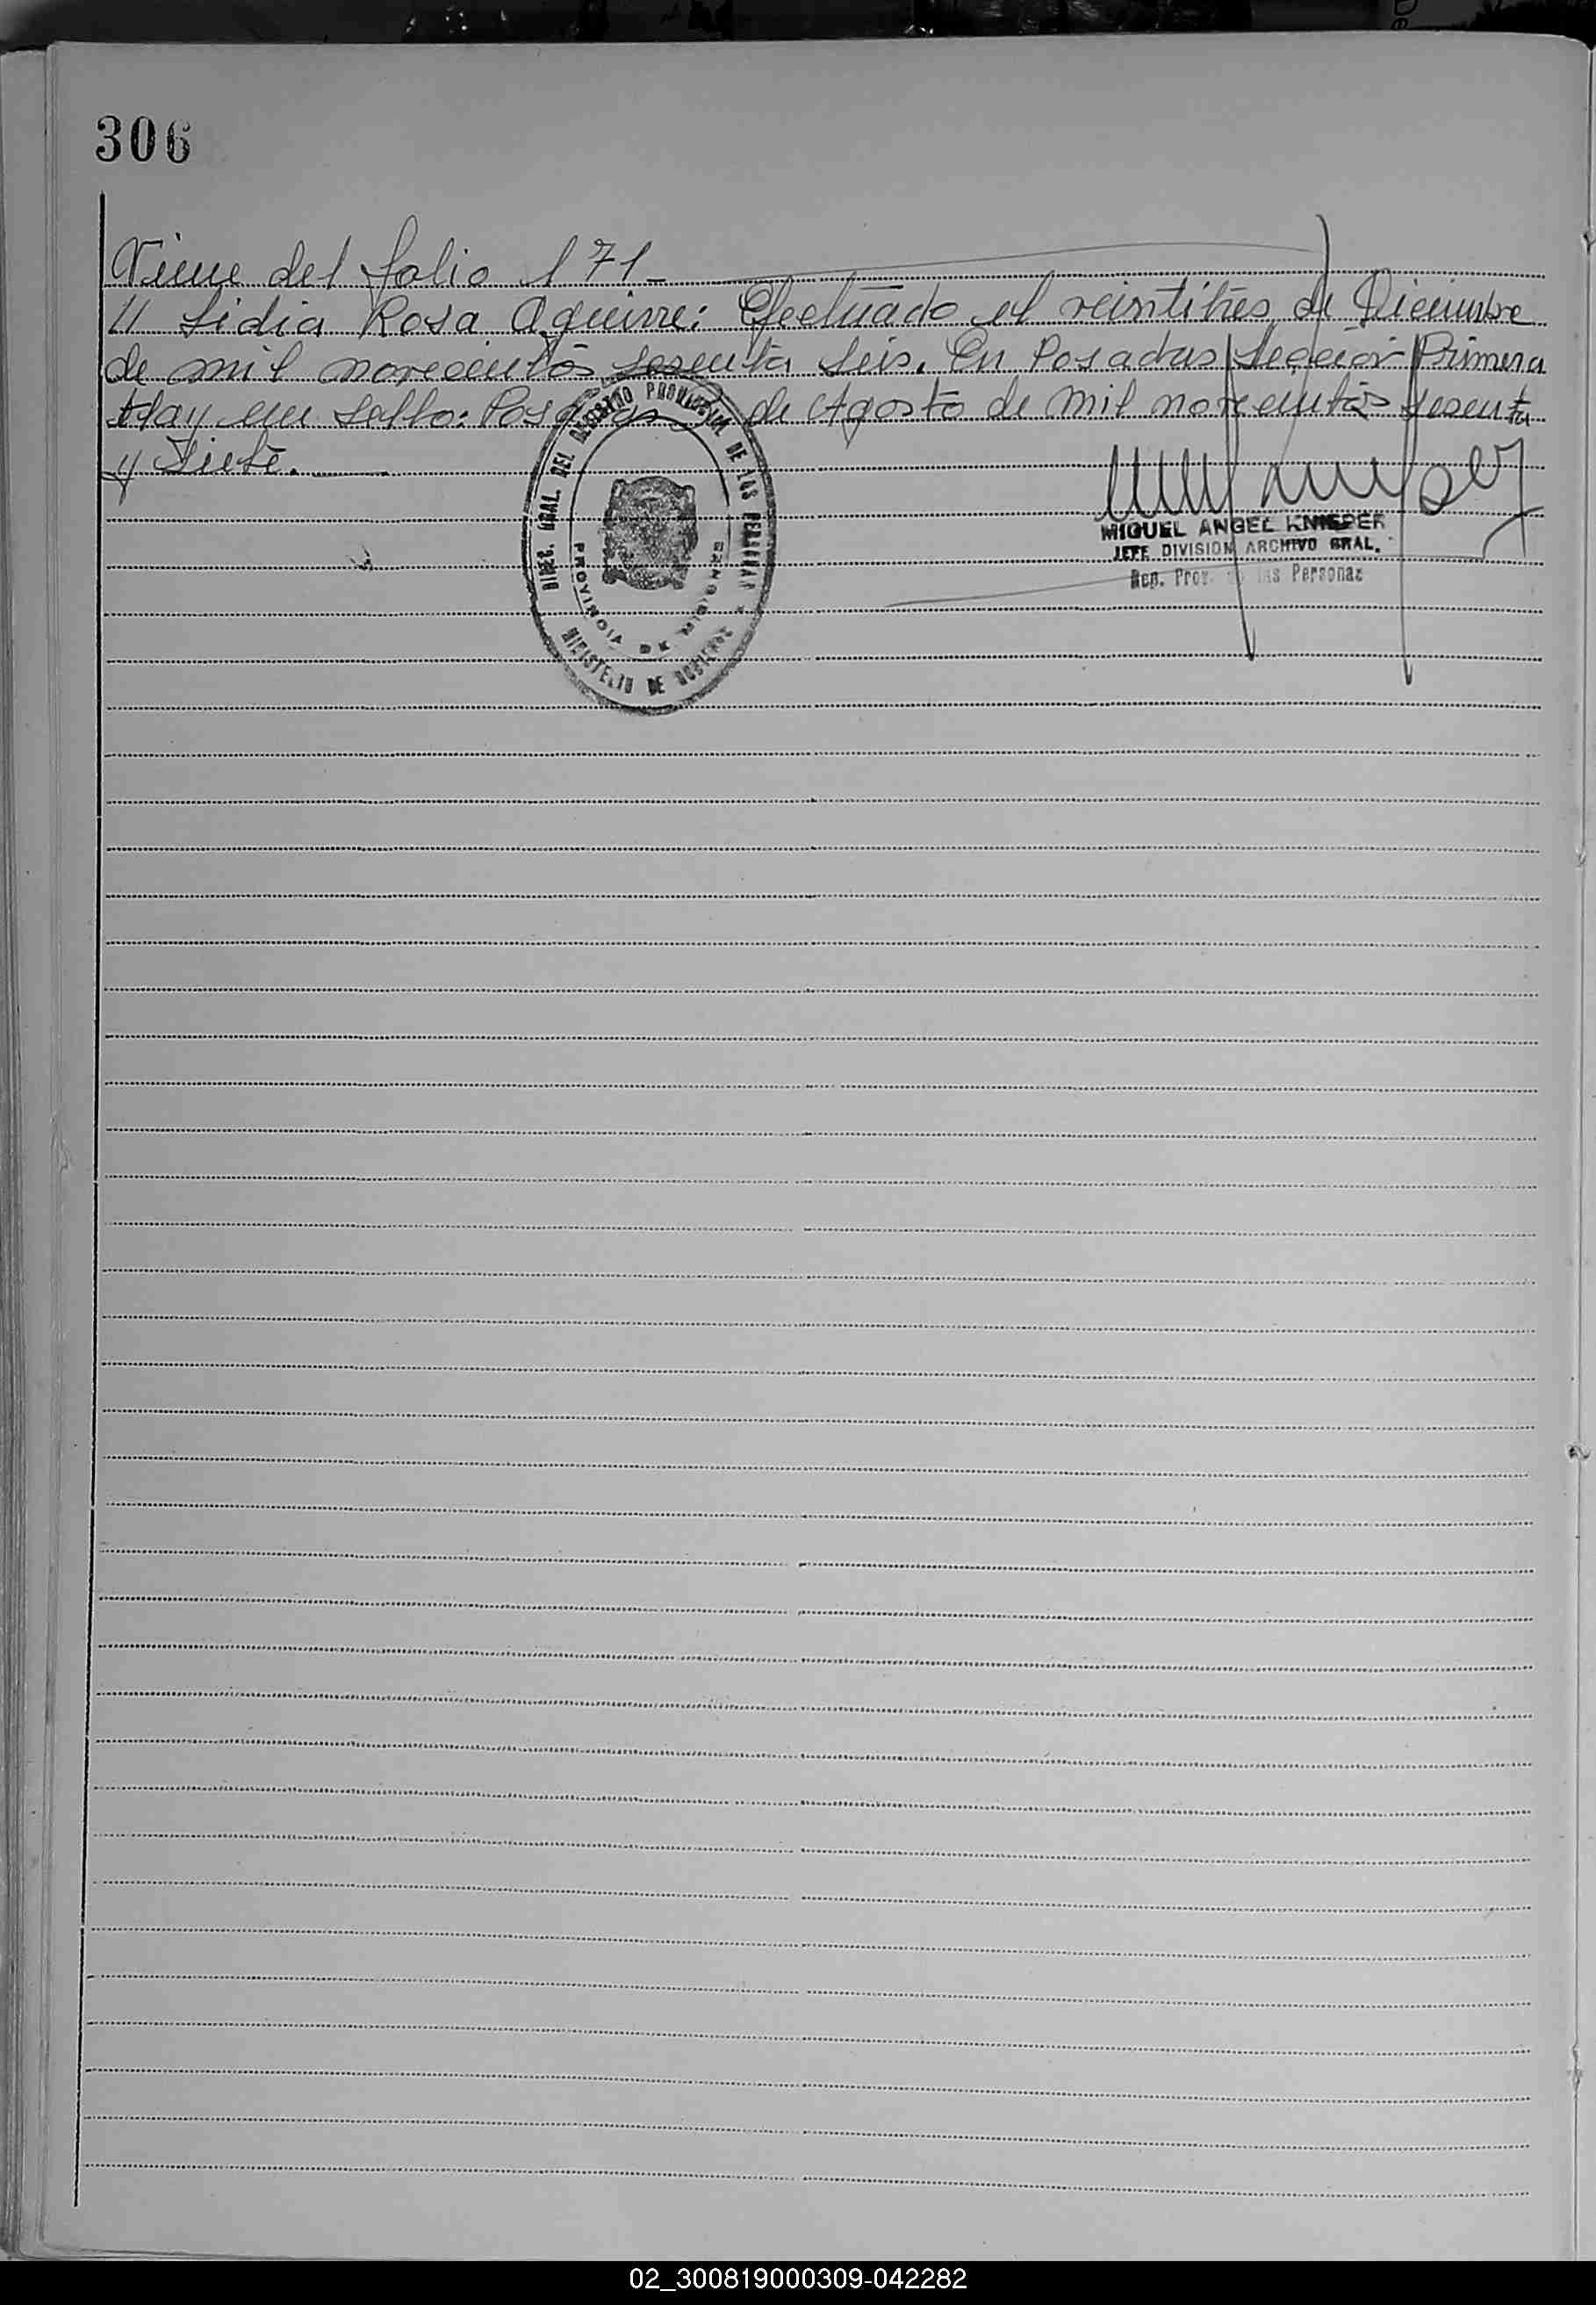 306
Viene del folio 171_
// Lidia Rosa Aguirre: Efectuado el veintitres de Diciembre
de mil novecientos sesenta seis. En Posadas Sección Primera
Hay un sello: Posadas de Agosto de mil novecientos sesenta
y Siete.
DIREC. GRAL. DEL REGISTRO PROVINCIAL DE LAS PERSONAS *
PROVINCIA DE MISIONES
MINISTERIO DE GOBIERNO
MIGUEL ANGEL KNIEPER
JEFE DIVISION ARCHIVO GRAL.
Reg. Prov. de las Personas
02_300819000309-042282